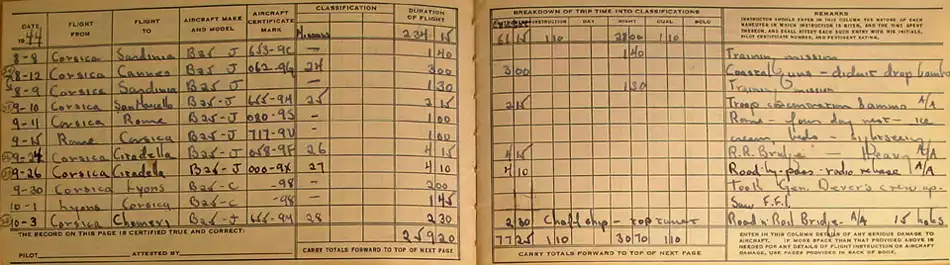 DATE FLIGHT FROM FLIGHT TO AIRCRAFT MAKE AND MODEL AIRCRAFT CERTIFICATE MARK CLASSIFICATION DURATION OF FLIGHT
1944 Missions 234 15
8-8 Corsica Sardinia B25-J 653-9C — 1 40
8-12 Corsica Cannes B25-J 062-96 24 3 00
8-9 Corsica Sardinia B25-J — 1 30
9-10 Corsica B25-J 655-9M 25 2 15
9-11 Corsica Rome B25-J 080-9S — 1 00
9-15 Rome Corsica B25-J 717-9V — 1 00
9-24 Corsica Citadella B25-J 058-9F 26 4 15
9-26 Corsica Citadella B25-J 000-9X 27 4 10
9-30 Corsica Lyons B25-C -98 — 2 00
10-1 Lyons Corsica B25-C -98 — 1 45
10-3 Corsica B25-J 655-9M 28 2 30
THE RECORD ON THIS PAGE IS CERTIFIED TRUE AND CORRECT: 259 20
PILOT ATTESTED BY CARRY TOTALS FORWARD TO TOP OF NEXT PAGE
BREAKDOWN OF TRIP TIME INTO CLASSIFICATIONS REMARKS
INSTRUCTION DAY NIGHT DUAL SOLO
INSTRUCTOR SHOULD ENTER IN THIS COLUMN THE NATURE OF EACH MANEUVER IN WHICH INSTRUCTION IS GIVEN, AND THE TIME SPENT THEREON, AND SHALL ATTEST EACH SUCH ENTRY WITH HIS INITIALS, PILOT CERTIFICATE NUMBER, AND PERTINENT RATING.
65 15 1 10 28 00 1 10
1 40 Training mission
3 00 Coastal guns — didnt drop bombs
1 30 Training mission
2 15 Troop concentration & ammo A/A
Rome — four day rest — ice
cream, beds — sightseeing
4 15 R.R. Bridge — Heavy A/A
4 10 Road by-pass - radio release A/A
Took Gen. Dever's crew up-
Saw F.F.I.
2 30 Chaff ship — top turret Road n' Rail Bridge. A/A 15 holes
77 25 1 10 30 70 1 10
CARRY TOTALS FORWARD TO TOP OF NEXT PAGE
ENTER IN THIS COLUMN DETAILS OF ANY SERIOUS DAMAGE TO AIRCRAFT. IF MORE SPACE THAN THAT PROVIDED ABOVE IS NEEDED FOR ANY DETAILS OF FLIGHT INSTRUCTION OR AIRCRAFT DAMAGE, USE PAGES PROVIDED IN BACK OF BOOK.